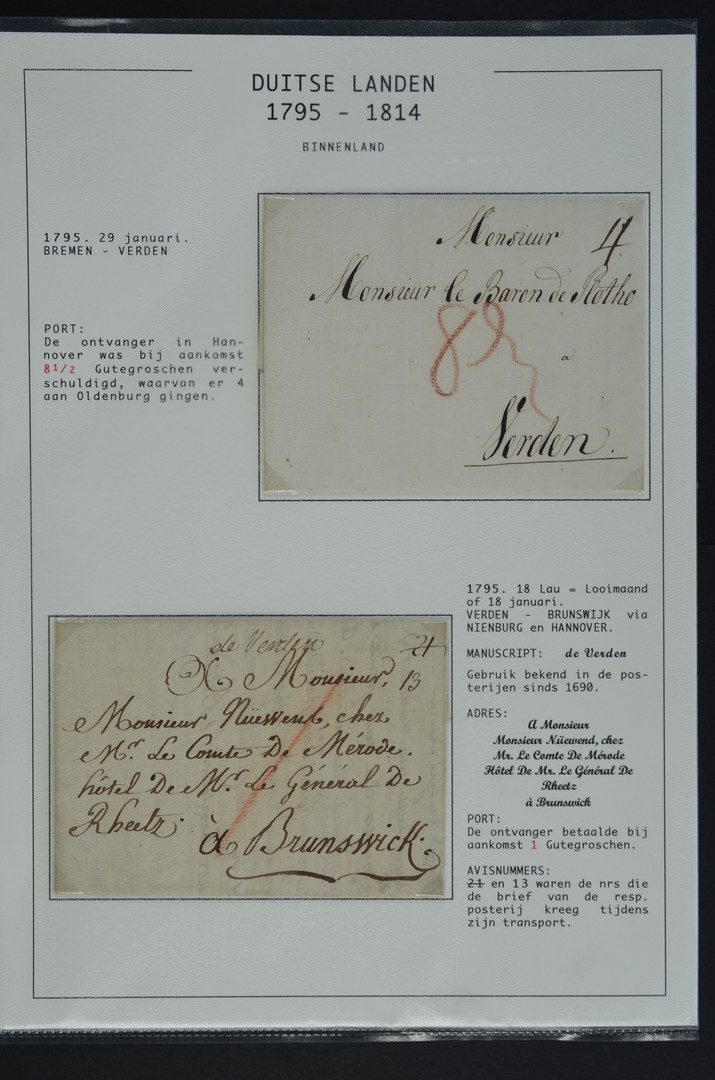 DUITSE LANDEN
1795 - 1814
BINNENLAND
1795. 29 januari.
BREMEN - VERDEN
PORT:
De ontvanger in Han-
nover was bij aankomst
8 1/2 Gutegroschen ver-
schuldigd, waarvan er 4
aan Oldenburg gingen.
Monsieur 4
Monsieur le Baron de Plotho
8½
a
Verden.
1795. 18 Lau = Looimaand
of 18 januari.
VERDEN - BRUNSWIJK via
NIENBURG en HANNOVER.
MANUSCRIPT: de Verden
Gebruik bekend in de pos-
terijen sinds 1690.
ADRES:
A Monsieur
Monsieur Nüewend, chez
Mr. Le Comte De Mérode
Hôtel De Mr. Le Général De
Rheetz
à Brunswick
PORT:
De ontvanger betaalde bij
aankomst 1 Gutegroschen.
AVISNUMMERS:
21 en 13 waren de nrs die
de brief van de resp.
posterij kreeg tijdens
zijn transport.
de Verden 21
A Monsieur, 13
Monsieur Nüewend, chez
Mr. Le Comte De Mérode.
hôtel De Mr. Le Général De
Rheetz.
à Brunswick.